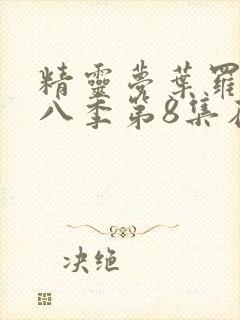 精靈夢葉罗
八季第8集在
决绝